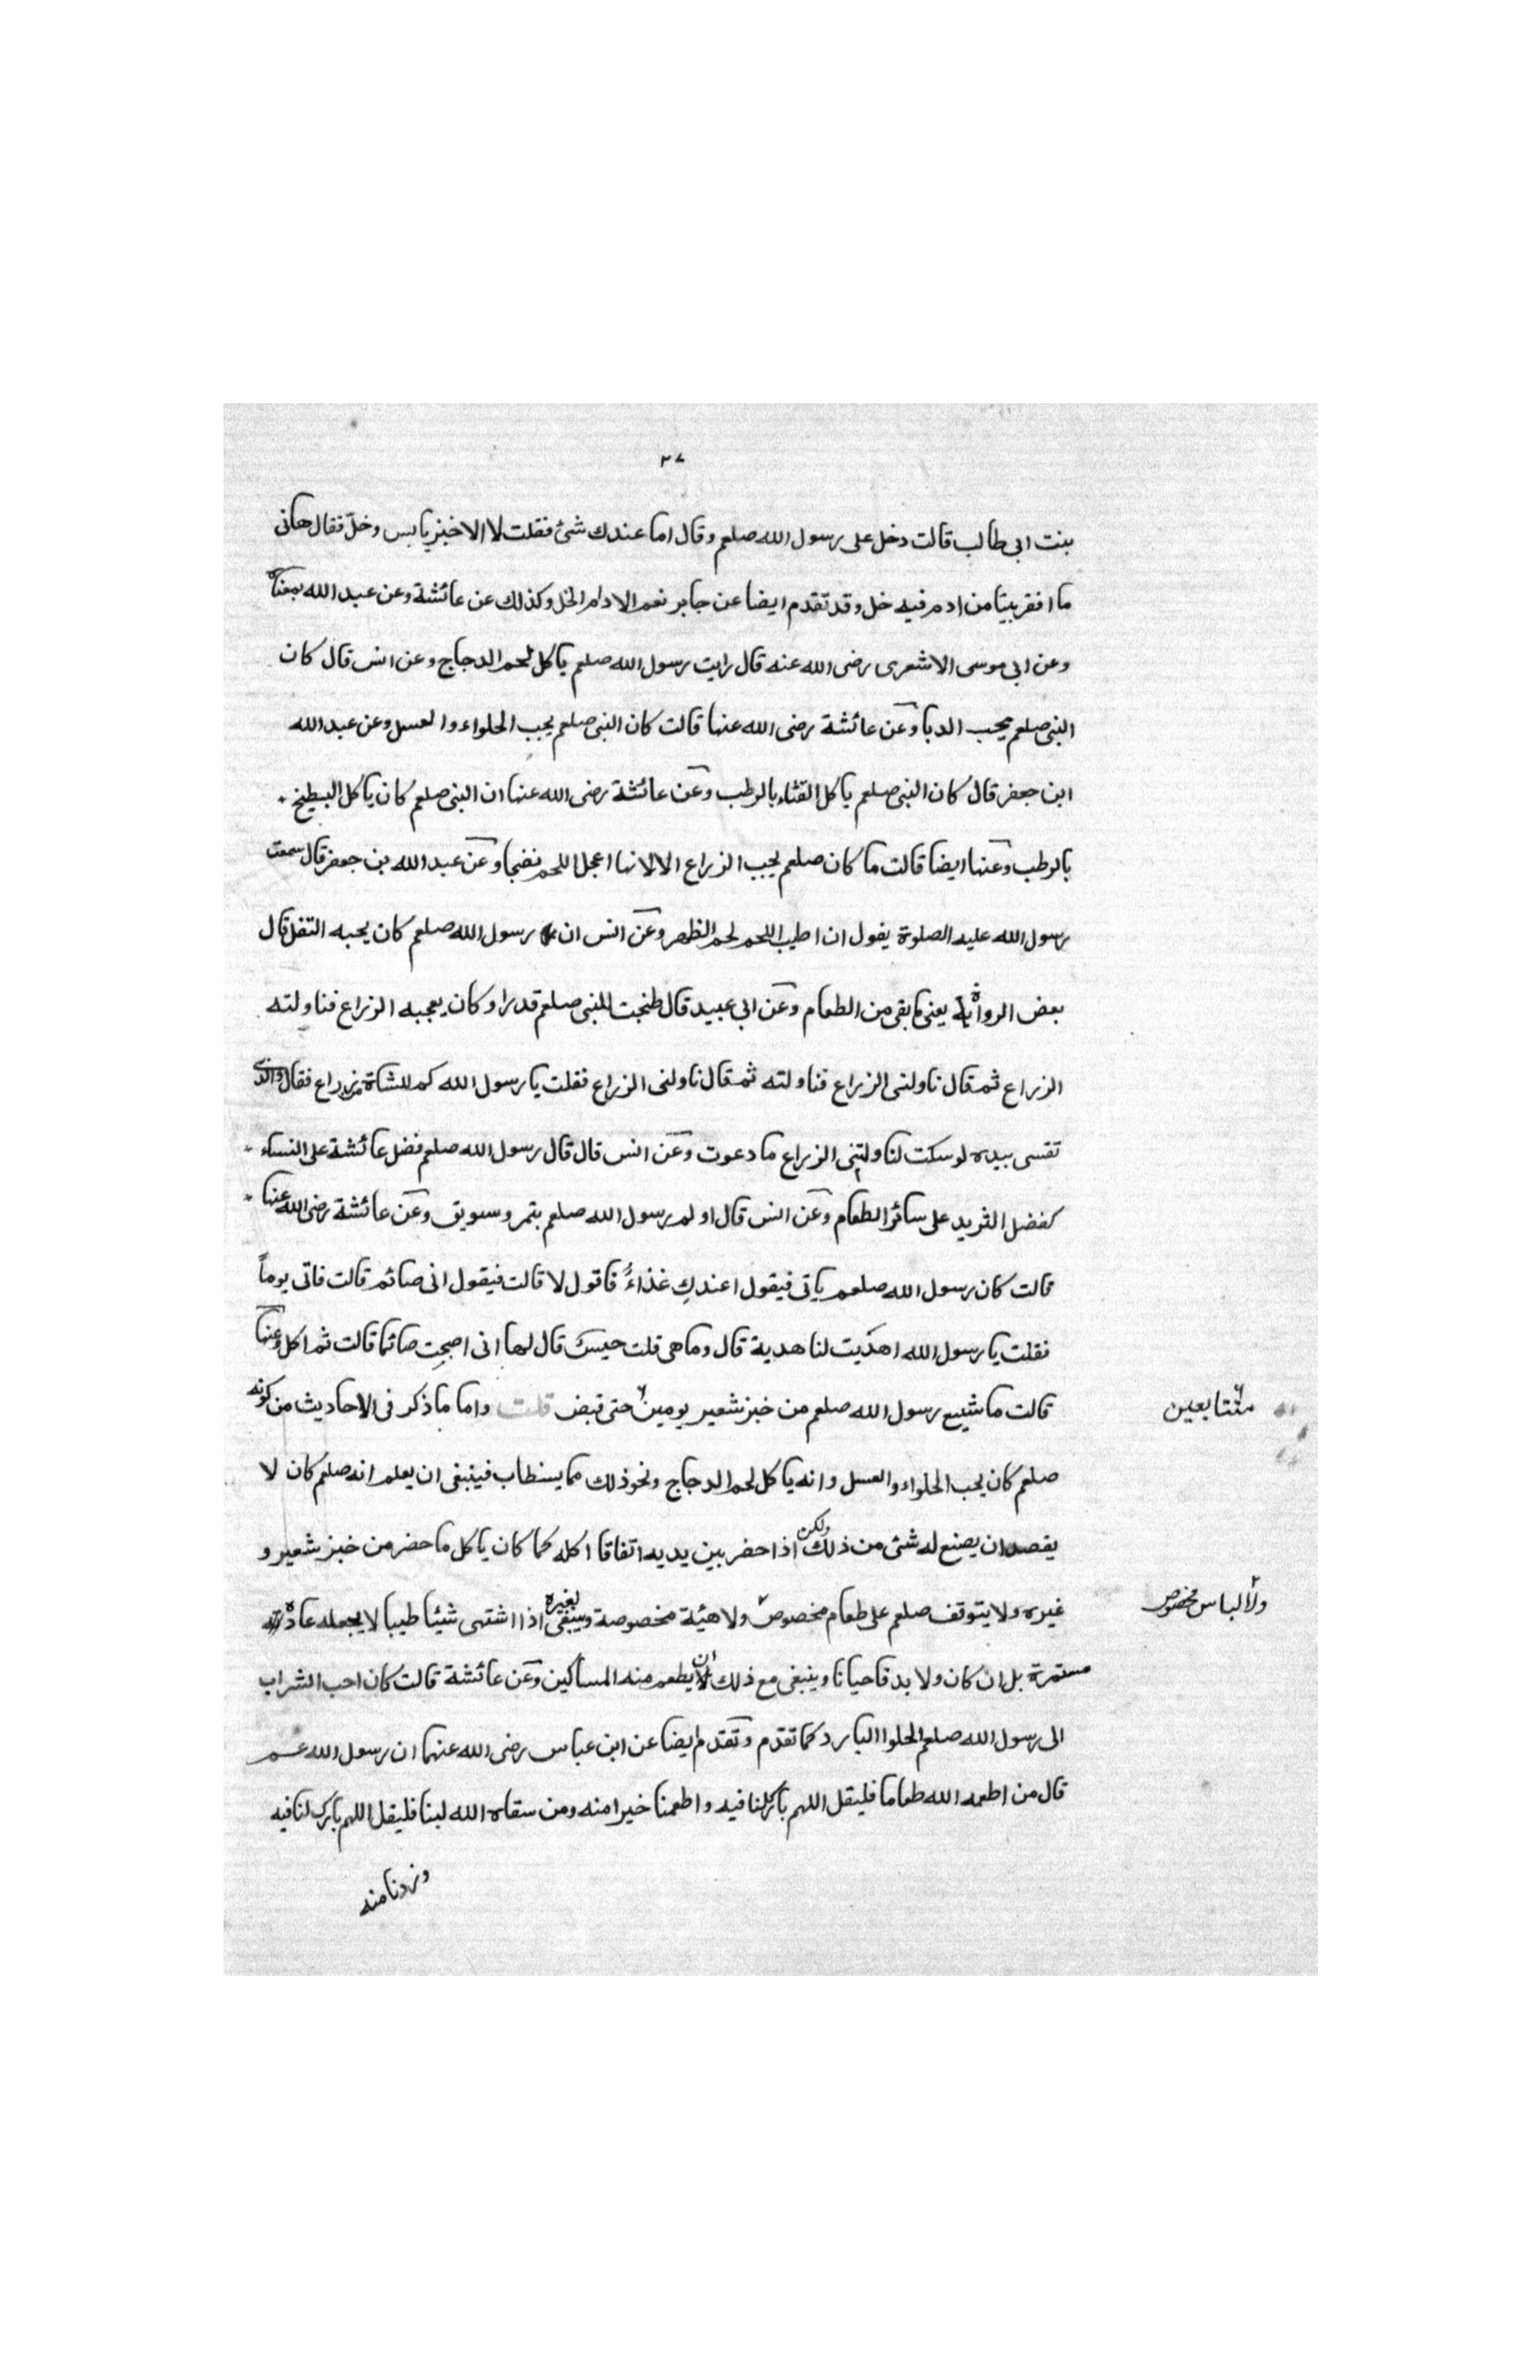 ٢٧
بنت ابى طالب قالت دخل على رسول الله صلعم وقال اما عندك شئ فقلت لا الا خبز يابس وخل فقال هاتى
ما افقر بيتا من ادم فيه خل وقد تقدم ايضا عن جابر نعم الادام الخل وكذلك عن عائشة وعن عبد الله بمعناه
وعن ابى موسى الاشعرى رضى الله عنه قال رايت رسول الله صلعم ياكل لحم الدجاج وعن انس قال كان
النبى صلعم يحب الدبا وعن عائشة رضى الله عنها قالت كان النبى صلعم يحب الحلواء والعسل وعن عبد الله
ابن جعفر قال كان النبى صلعم ياكل القثاء بالرطب وعن عائشة رضى الله عنها ان النبى صلعم كان ياكل البطيخ
بالرطب وعنها ايضا قالت ما كان صلعم يحب الزراع الا لانها اعجل اللحم نضجا وعن عبد الله بن جعفر قال سمعت
رسول الله عليه الصلوة يقول ان اطيب اللحم لحم الظهر وعن انس ان رسول الله صلعم كان يحبه التفل قال
بعض الرواة يعنى ما بقى من الطعام وعن ابى عبيد قال طنجت للنبى صلعم قدرا وكان يعجبه الزراع فناولته
الزراع ثم قال ناولنى الزراع فناولته ثم قال ناولنى الزراع فقلت يا رسول الله كم للشاة من زراع فقال والذى
تقسى بيده لو سكت لناولتنى الزراع ما دعوت وعن انس قال قال رسول الله صلعم فضل عائشة على النساء
كفضل الثريد على سائر الطعام وعن انس قال اولم رسول الله صلعم بتمر وسويق وعن عائشة رضى الله عنها
قالت كان رسول الله صلعم ياتى فيقول اعندكِ غذاءٌ فاقول لا قالت فيقول انى صائم قالت فاتى يوماً
فقلت يا رسول الله اهديت لنا هدية قال وما هى قلت حيسك قال لها انى اصبحت صائما قالت ثم اكل وعنها
قالت ما شبع رسول الله صلعم من خبز شعير يومين حتى قبض قلت واما ما ذكر فى الاحاديث من كونه
متتابعين
صلعم كان يحب الحلواء والعسل وانه ياكل لحم الدجاج ونحو ذلك مما يستطاب فينبغى ان يعلم انه صلعم كان لا
يقصد ان يصنع له شئ من ذلك ولكن اذا حضر بين يديه اتفاقا اكله كما كان ياكل ما حضر من خبز شعير و
غيره ولا يتوقف صلعم على طعام مخصوص ولا هيئة مخصوصة وينبغى لغيره اذا اشتهى شيئا طيبا لا يجعله عادة
ولا لباس مخصوص
مستمرة بل ان كان ولا بد فاحيانا وينبغى مع ذلك ان يطعم منه المساكين وعن عائشة قالت كان احب الشراب
الى رسول الله صلعم الحلوا البارد كما تقدم وتقدم ايضا عن ابن عباس رضى الله عنهما ان رسول الله عم
قال من اطعمه الله طعاما فليقل اللهم بارك لنا فيه واطعمنا خيرا منه ومن سقاه الله لبنا فليقل اللهم بارك لنا فيه
وزدنا منه